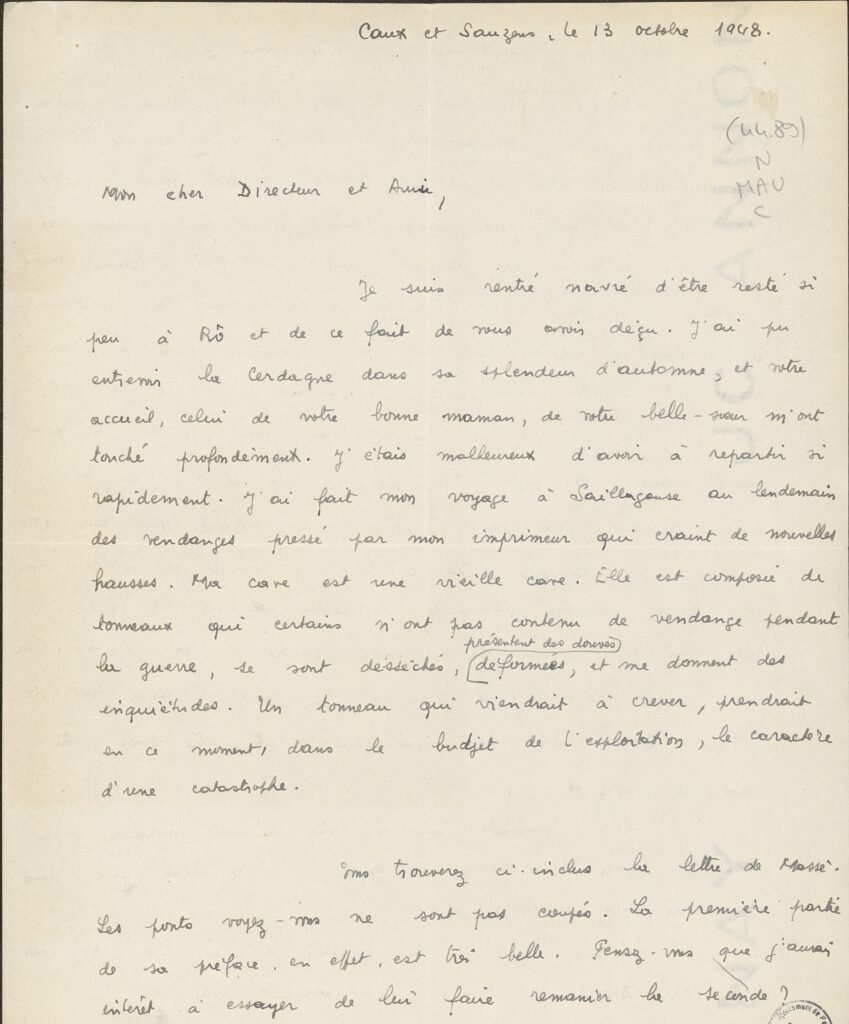 Caux et Sauzens, le 13 octobre 1948.
(44.89)
N
MAU
C
Mon cher Directeur et Ami,
Je suis rentré navré d'être resté si
peu à Rô et de ce fait de vous avoir déçu. J'ai pu
entrevoir la Cerdagne dans sa splendeur d'automne, et votre
accueil, celui de votre bonne maman, de votre belle-sœur m'ont
touché profondément. J'étais malheureux d'avoir à repartir si
rapidement. J'ai fait mon voyage à Saillagouse au lendemain
des vendanges pressé par mon imprimeur qui craint de nouvelles
hausses. Ma cave est une vieille cave. Elle est composée de
tonneaux qui certains n'ont pas contenu de vendange pendant
présentent des douves
la guerre, se sont désséchés, déformées, et me donnent des
inquiétudes. Un tonneau qui viendrait à crever, prendrait
en ce moment, dans le budjet de l'exploitation, le caractère
d'une catastrophe.
Vous trouverez ci-inclus la lettre de Massé.
Les ponts voyez-vous ne sont pas coupés. La première partie
de sa préface, en effet, est très belle. Pensez-vous que j'aurais
intérêt à essayer de lui faire remanier la seconde?